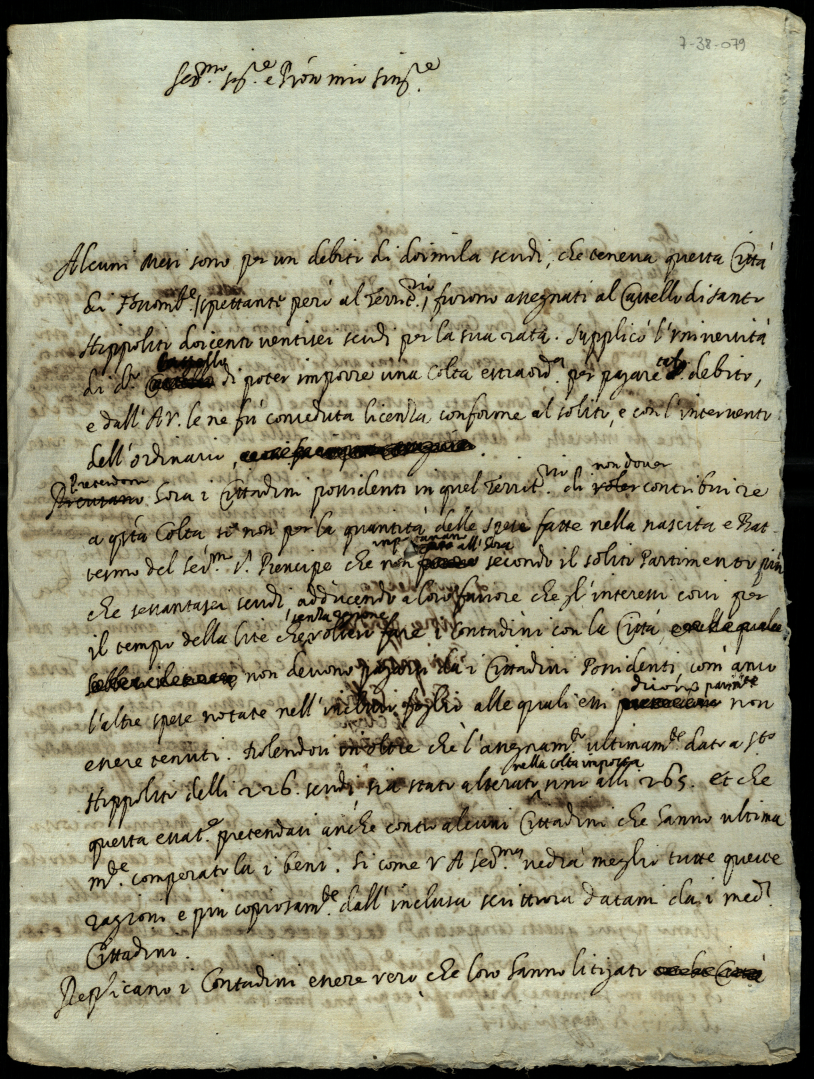 7-38-079
Ser.mo Sig.re e Pròn mio Sing.re
Alcuni Mesi sono per un debito di doimila scudi, che teneva questa Città
di Fossomb.e spettante però al Territ.rio, furono assegnati al Castello di Santo
Hippolito doicento ventisei scudi per la sua rata. Supplicò l'Università
di d.o Castello di poter imporre una Colta estraord.a per pagare tal debito,
e dall'A.V. le ne fù conceduta licenza conforme al solito, e con l'intervento
dell'ordinario,
Pretendono hora i Cittadini possidenti in quel Territ.rio di non dover contribuire
a q.sta Colta se non per la quantità delle spese fatte nella nascita e Bat
tesmo del Ser.mo S.r Prencipe che non secondo il solito Partimento più
che sessantasei scudi, adducendo a loro favore che gl'interessi corsi per
il tempo della lite senza ragione i Contadini con la Città,
non devono da i Cittadini Possidenti, com'anco
l'altre spese notate nell'incluso foglio alle quali essi dicono parim.te non
essere tenuti. Dolendosi inoltre che l'assegnam.to ultimam.te dato a S.to
Hippolito delli 226. scudi sia stato alterato nella colta imposta sino alli 265. et che
questa esatt.e pretendasi anche contro alcuni Cittadini che hanno ultima
m.te comperato la i beni. Si come V A Ser.ma vedrà meglio tutte queste
ragioni e più copiosam.te dall'inclusa scrittura datami da i med.i
Cittadini.
Replicano i Contadini essere vero che loro hanno litigato